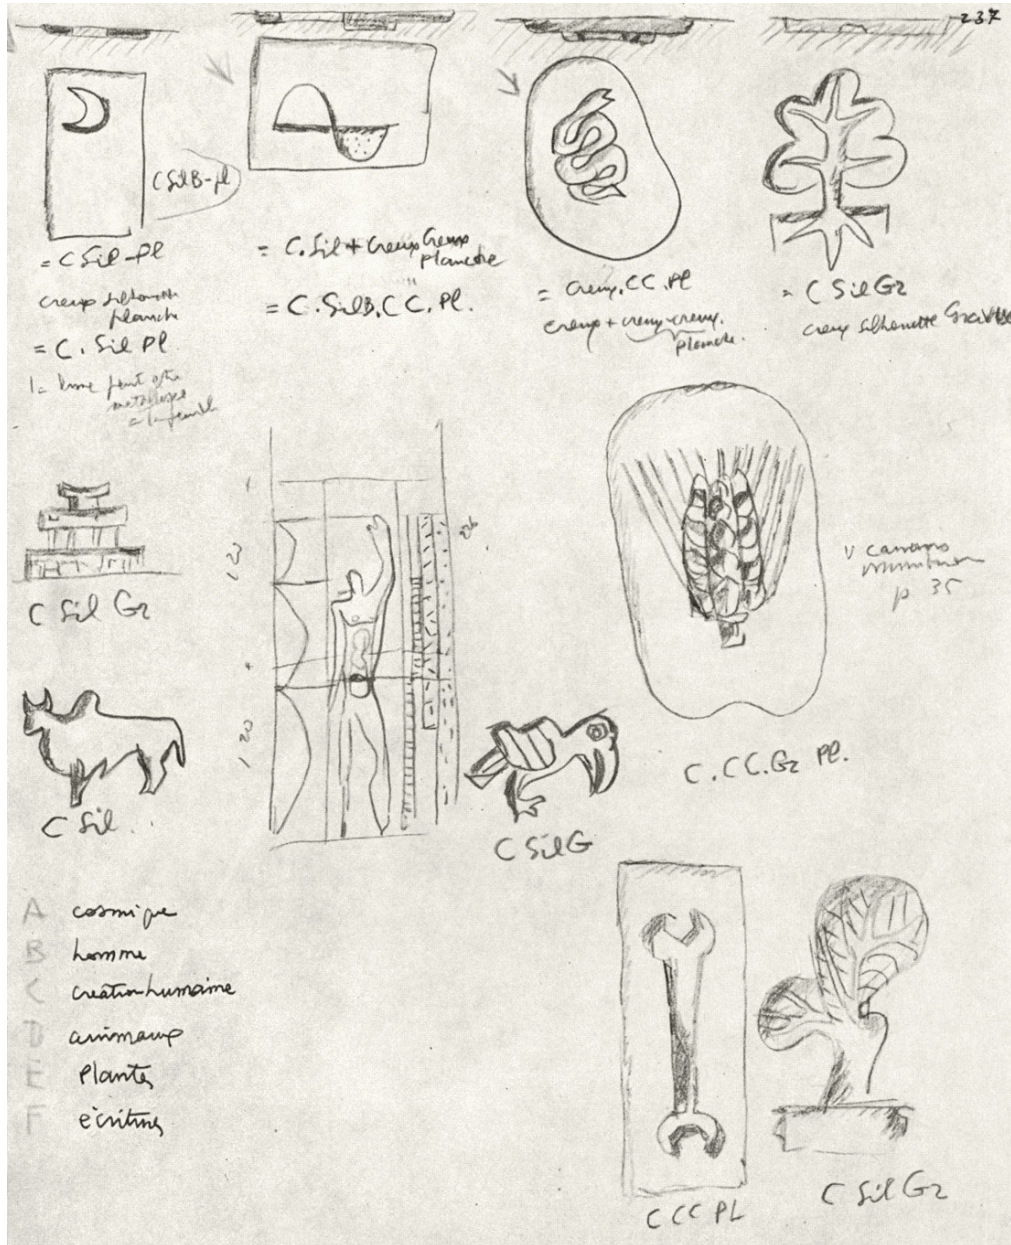 237
C Sil B-pl
= C Sil-Pl
creux silhouette
planche
= C. Sil Pl.
= C. Sil + Creux Creux
planche
= C. SilB. C C. Pl.
= Creux. CC. Pl
Creux + creux-creux.
planche.
= C Sil Gr
creux silhouette Gravure
C Sil Gr
120
226
120
p 35
C Sil
C Sil G
C. CC. Gr Pl.
A cosmique
B homme
C création humaine
D animaux
E Plantes
F écritures
C C C PL
C Sil Gr